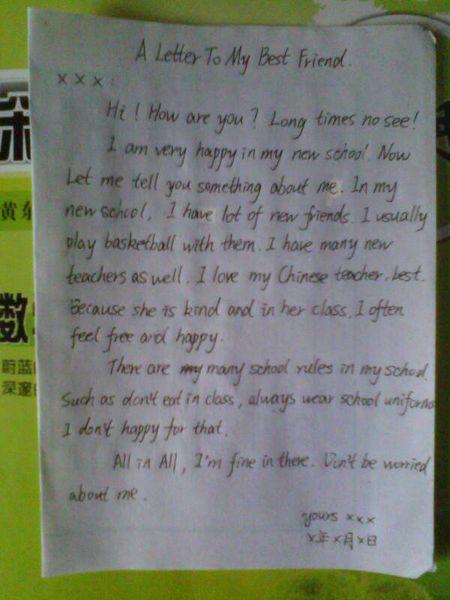 A Letter To My Best Friend.
×××:
Hi! How are you? Long times no see!
I am very happy in my new school. Now
Let me tell you something about me. In my
new school, I have lot of new friends. I usually
play basketball with them. I have many new
teachers as well. I love my Chinese teacher best.
Because she is kind and in her class, I often
feel free and happy.
There are many school rules in my school.
Such as don't eat in class, always wear school uniforms
I don't happy for that.
All in All, I'm fine in there. Don't be worried
about me.
yours ×××
×年×月×日
黄东
数
蔚蓝
深邃